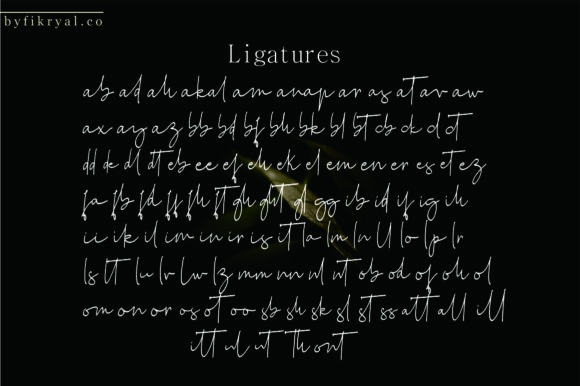 byfikryal.co
Ligatures
ab ad ah akal am anap ar as at av aw
ax ay az bb bd bf bh bk bl bt cb ck cl ct
dd de dl dt eb ee ef eh ek el em en er es et ez
fa fb fd ff fh ft gh ght gl gg ib id if ig ih
ii ik il im in ir is it la lm ln ll lo lp lr
ls lt lu lv lw lz mm nn nl nt ob od of oh ol
om on or os ot oo sb sh sk sl st ss att all ill
itt ul ut Th ont